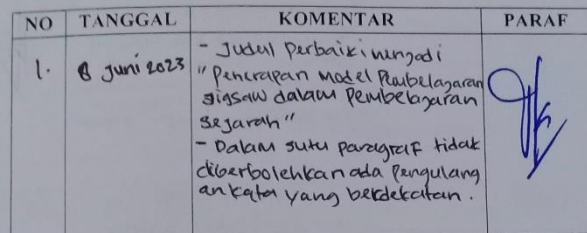 NO TANGGAL KOMENTAR PARAF
1. 8 Juni 2023 - Judul perbaiki menjadi
"Penerapan Model Pembelajaran
Jigsaw dalam Pembelajaran
Sejarah"
- Dalam sutu paragraf tidak
diberbolehkan ada Pengulang
an kata yang berdekatan.